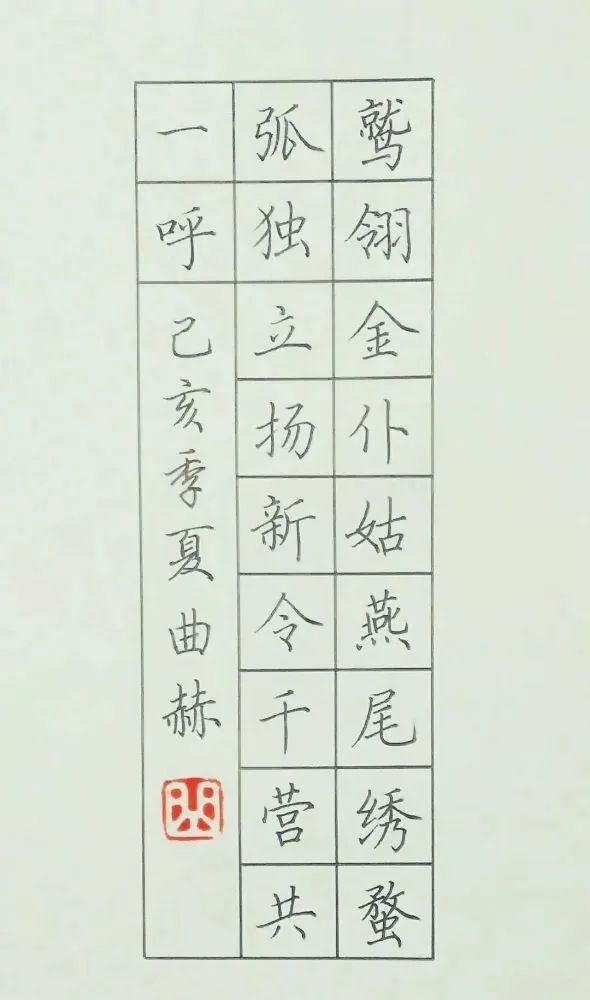 鹫翎金仆姑燕尾绣蝥
弧独立扬新令千营共
一呼
己亥季夏曲赫